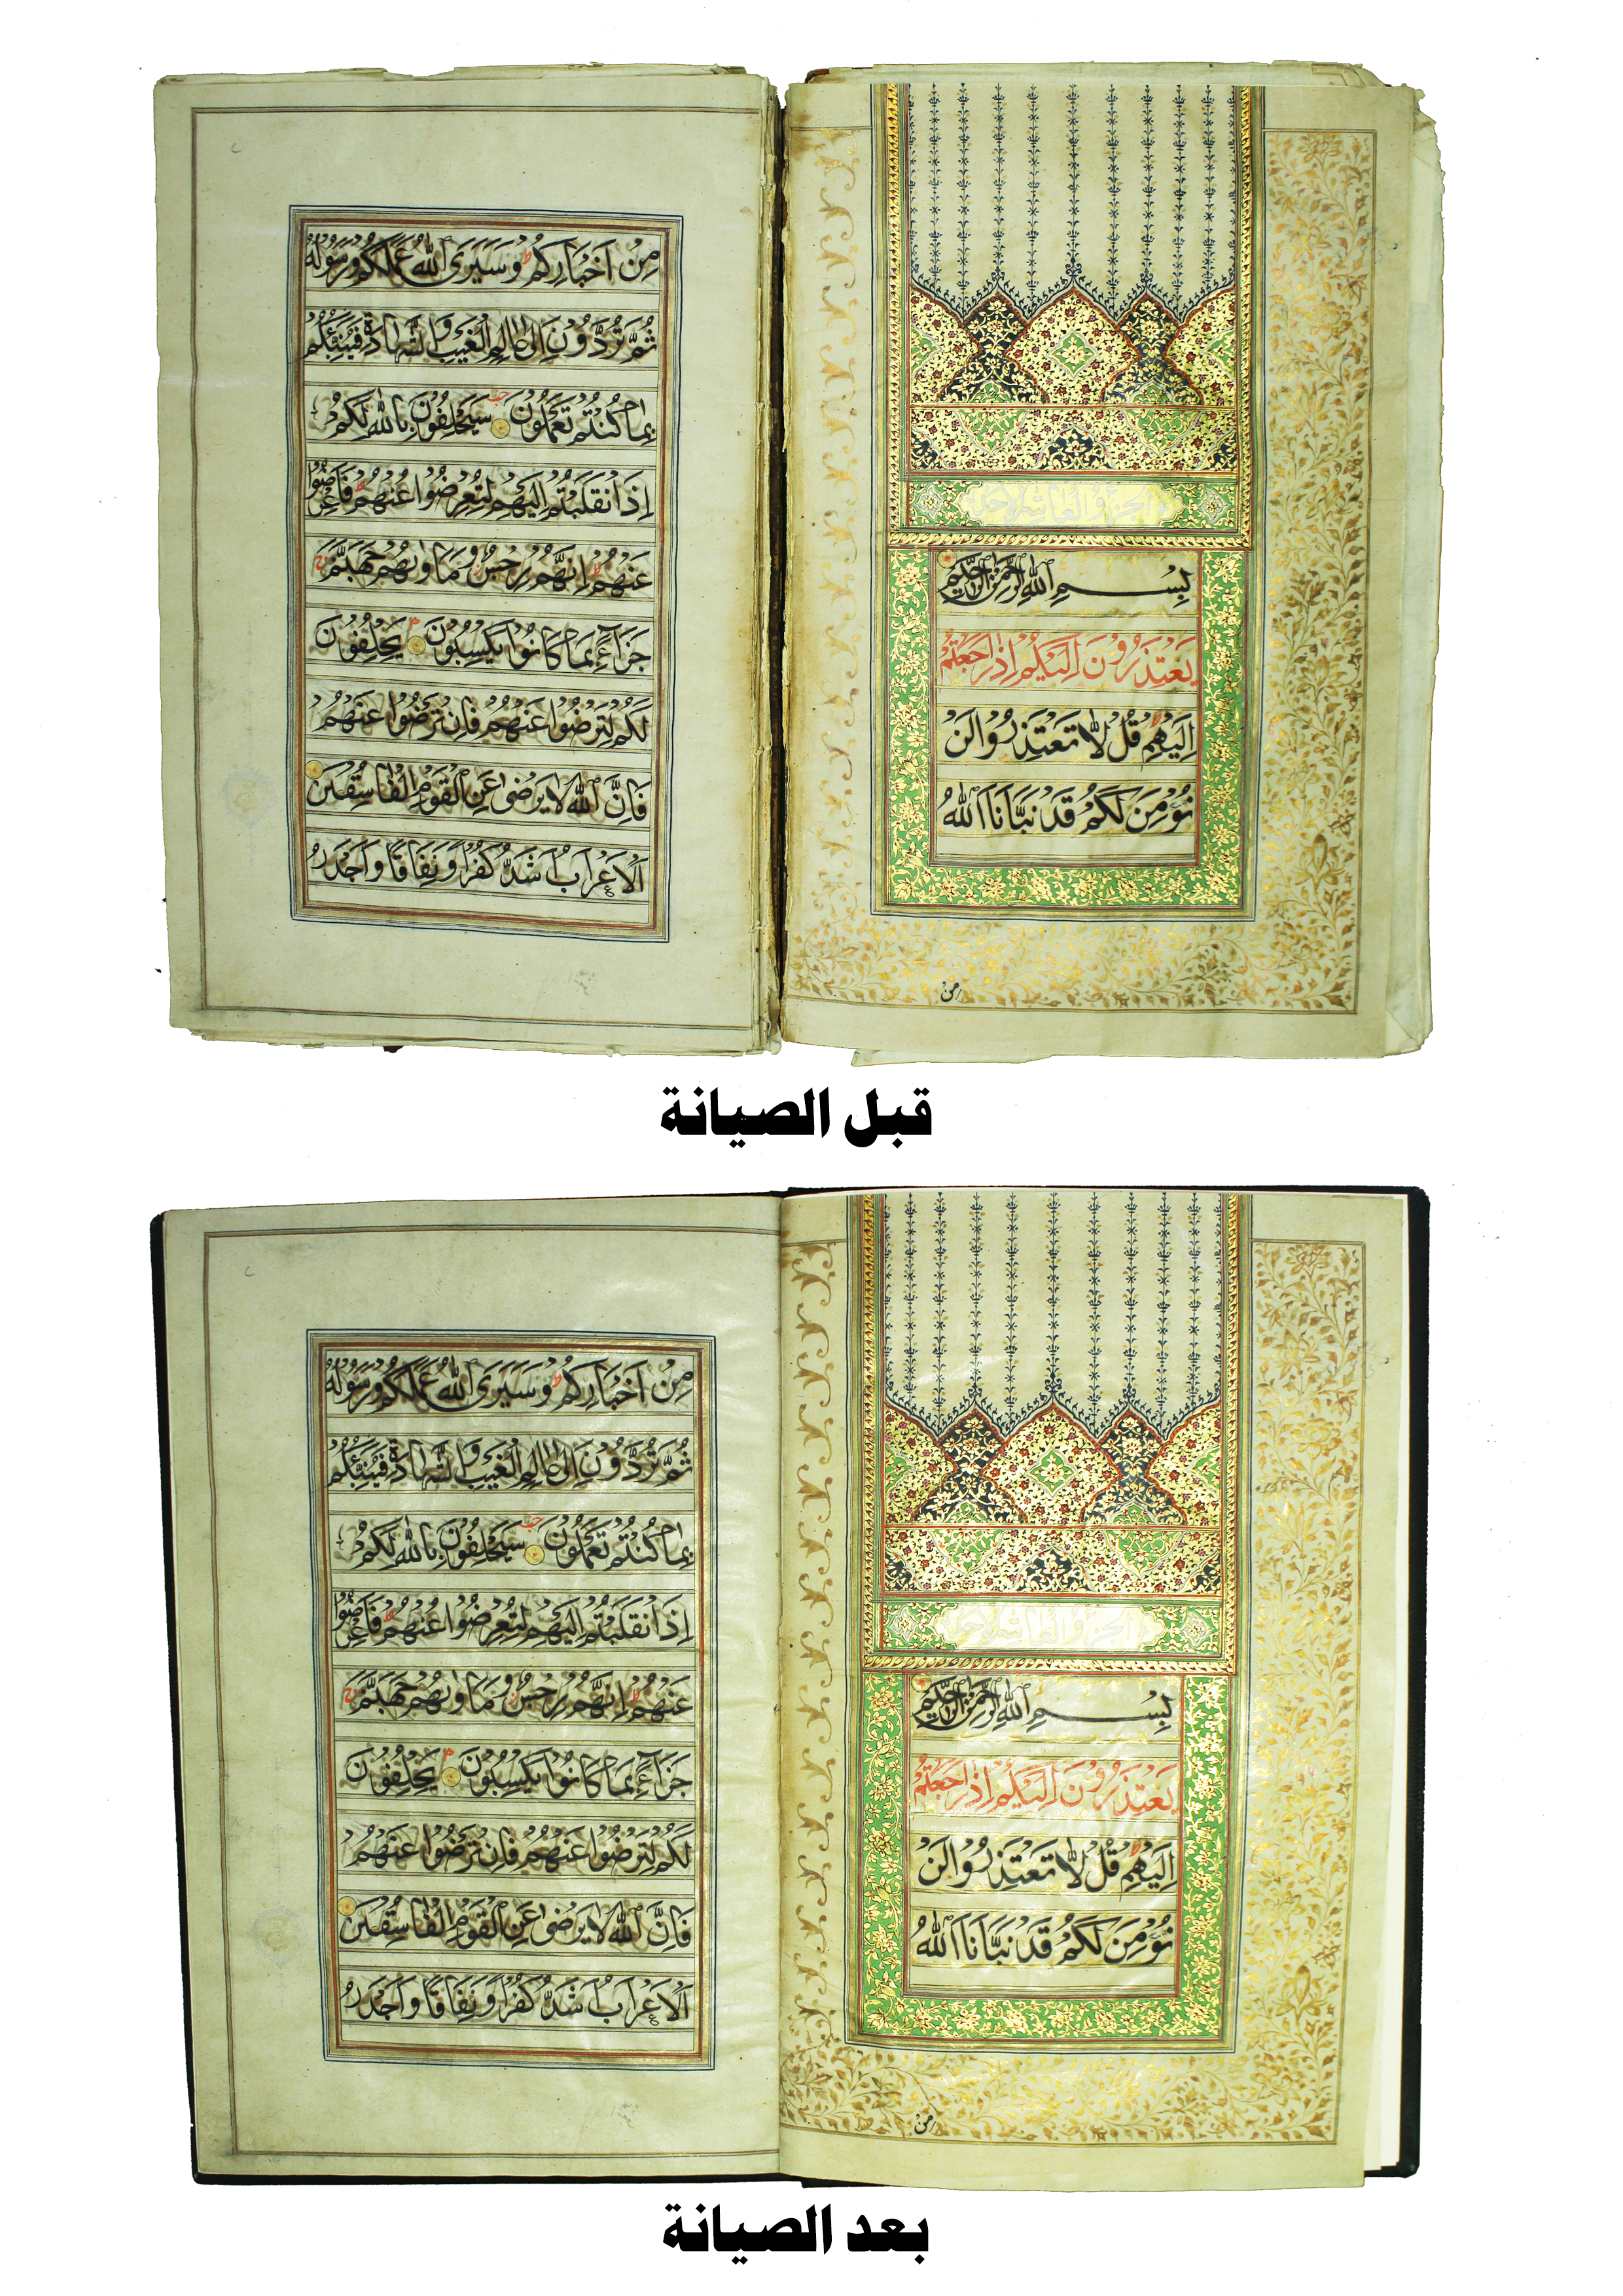 بِسْمِ اللهِ الرَّحْمٰنِ الرَّحِيمِ
يَعْتَذِرُونَ اِلَيْكُمْ اِذَا رَجَعْتُمْ
اِلَيْهِمْ قُلْ لَا تَعْتَذِرُوا لَنْ
نُؤْمِنَ لَكُمْ قَدْ نَبَّاَنَا اللهُ
مِنْ
مِنْ اَخْبَارِكُمْ ط وَسَيَرَى اللهُ عَمَلَكُمْ وَرَسُولُهُ
ثُمَّ تُرَدُّونَ اِلٰى عَالِمِ الْغَيْبِ وَالشَّهَادَةِ فَيُنَبِّئُكُمْ
بِمَا كُنْتُمْ تَعْمَلُونَ سَيَحْلِفُونَ بِاللهِ لَكُمْ
اِذَا انْقَلَبْتُمْ اِلَيْهِمْ لِتُعْرِضُوا عَنْهُمْ ط فَاَعْرِضُوا
عَنْهُمْ ط اِنَّهُمْ رِجْسٌ وَمَاْوٰيهُمْ جَهَنَّمُ ج
جَزَاءً بِمَا كَانُوا يَكْسِبُونَ يَحْلِفُونَ
لَكُمْ لِتَرْضَوْا عَنْهُمْ فَاِنْ تَرْضَوْا عَنْهُمْ
فَاِنَّ اللهَ لَا يَرْضٰى عَنِ الْقَوْمِ الْفَاسِقِينَ
اَلْاَعْرَابُ اَشَدُّ كُفْرًا وَنِفَاقًا وَاَجْدَرُ
قبل الصيانة
بِسْمِ اللهِ الرَّحْمٰنِ الرَّحِيمِ
يَعْتَذِرُونَ اِلَيْكُمْ اِذَا رَجَعْتُمْ
اِلَيْهِمْ قُلْ لَا تَعْتَذِرُوا لَنْ
نُؤْمِنَ لَكُمْ قَدْ نَبَّاَنَا اللهُ
مِنْ
مِنْ اَخْبَارِكُمْ ط وَسَيَرَى اللهُ عَمَلَكُمْ وَرَسُولُهُ
ثُمَّ تُرَدُّونَ اِلٰى عَالِمِ الْغَيْبِ وَالشَّهَادَةِ فَيُنَبِّئُكُمْ
بِمَا كُنْتُمْ تَعْمَلُونَ سَيَحْلِفُونَ بِاللهِ لَكُمْ
اِذَا انْقَلَبْتُمْ اِلَيْهِمْ لِتُعْرِضُوا عَنْهُمْ ط فَاَعْرِضُوا
عَنْهُمْ ط اِنَّهُمْ رِجْسٌ وَمَاْوٰيهُمْ جَهَنَّمُ ج
جَزَاءً بِمَا كَانُوا يَكْسِبُونَ يَحْلِفُونَ
لَكُمْ لِتَرْضَوْا عَنْهُمْ فَاِنْ تَرْضَوْا عَنْهُمْ
فَاِنَّ اللهَ لَا يَرْضٰى عَنِ الْقَوْمِ الْفَاسِقِينَ
اَلْاَعْرَابُ اَشَدُّ كُفْرًا وَنِفَاقًا وَاَجْدَرُ
بعد الصيانة